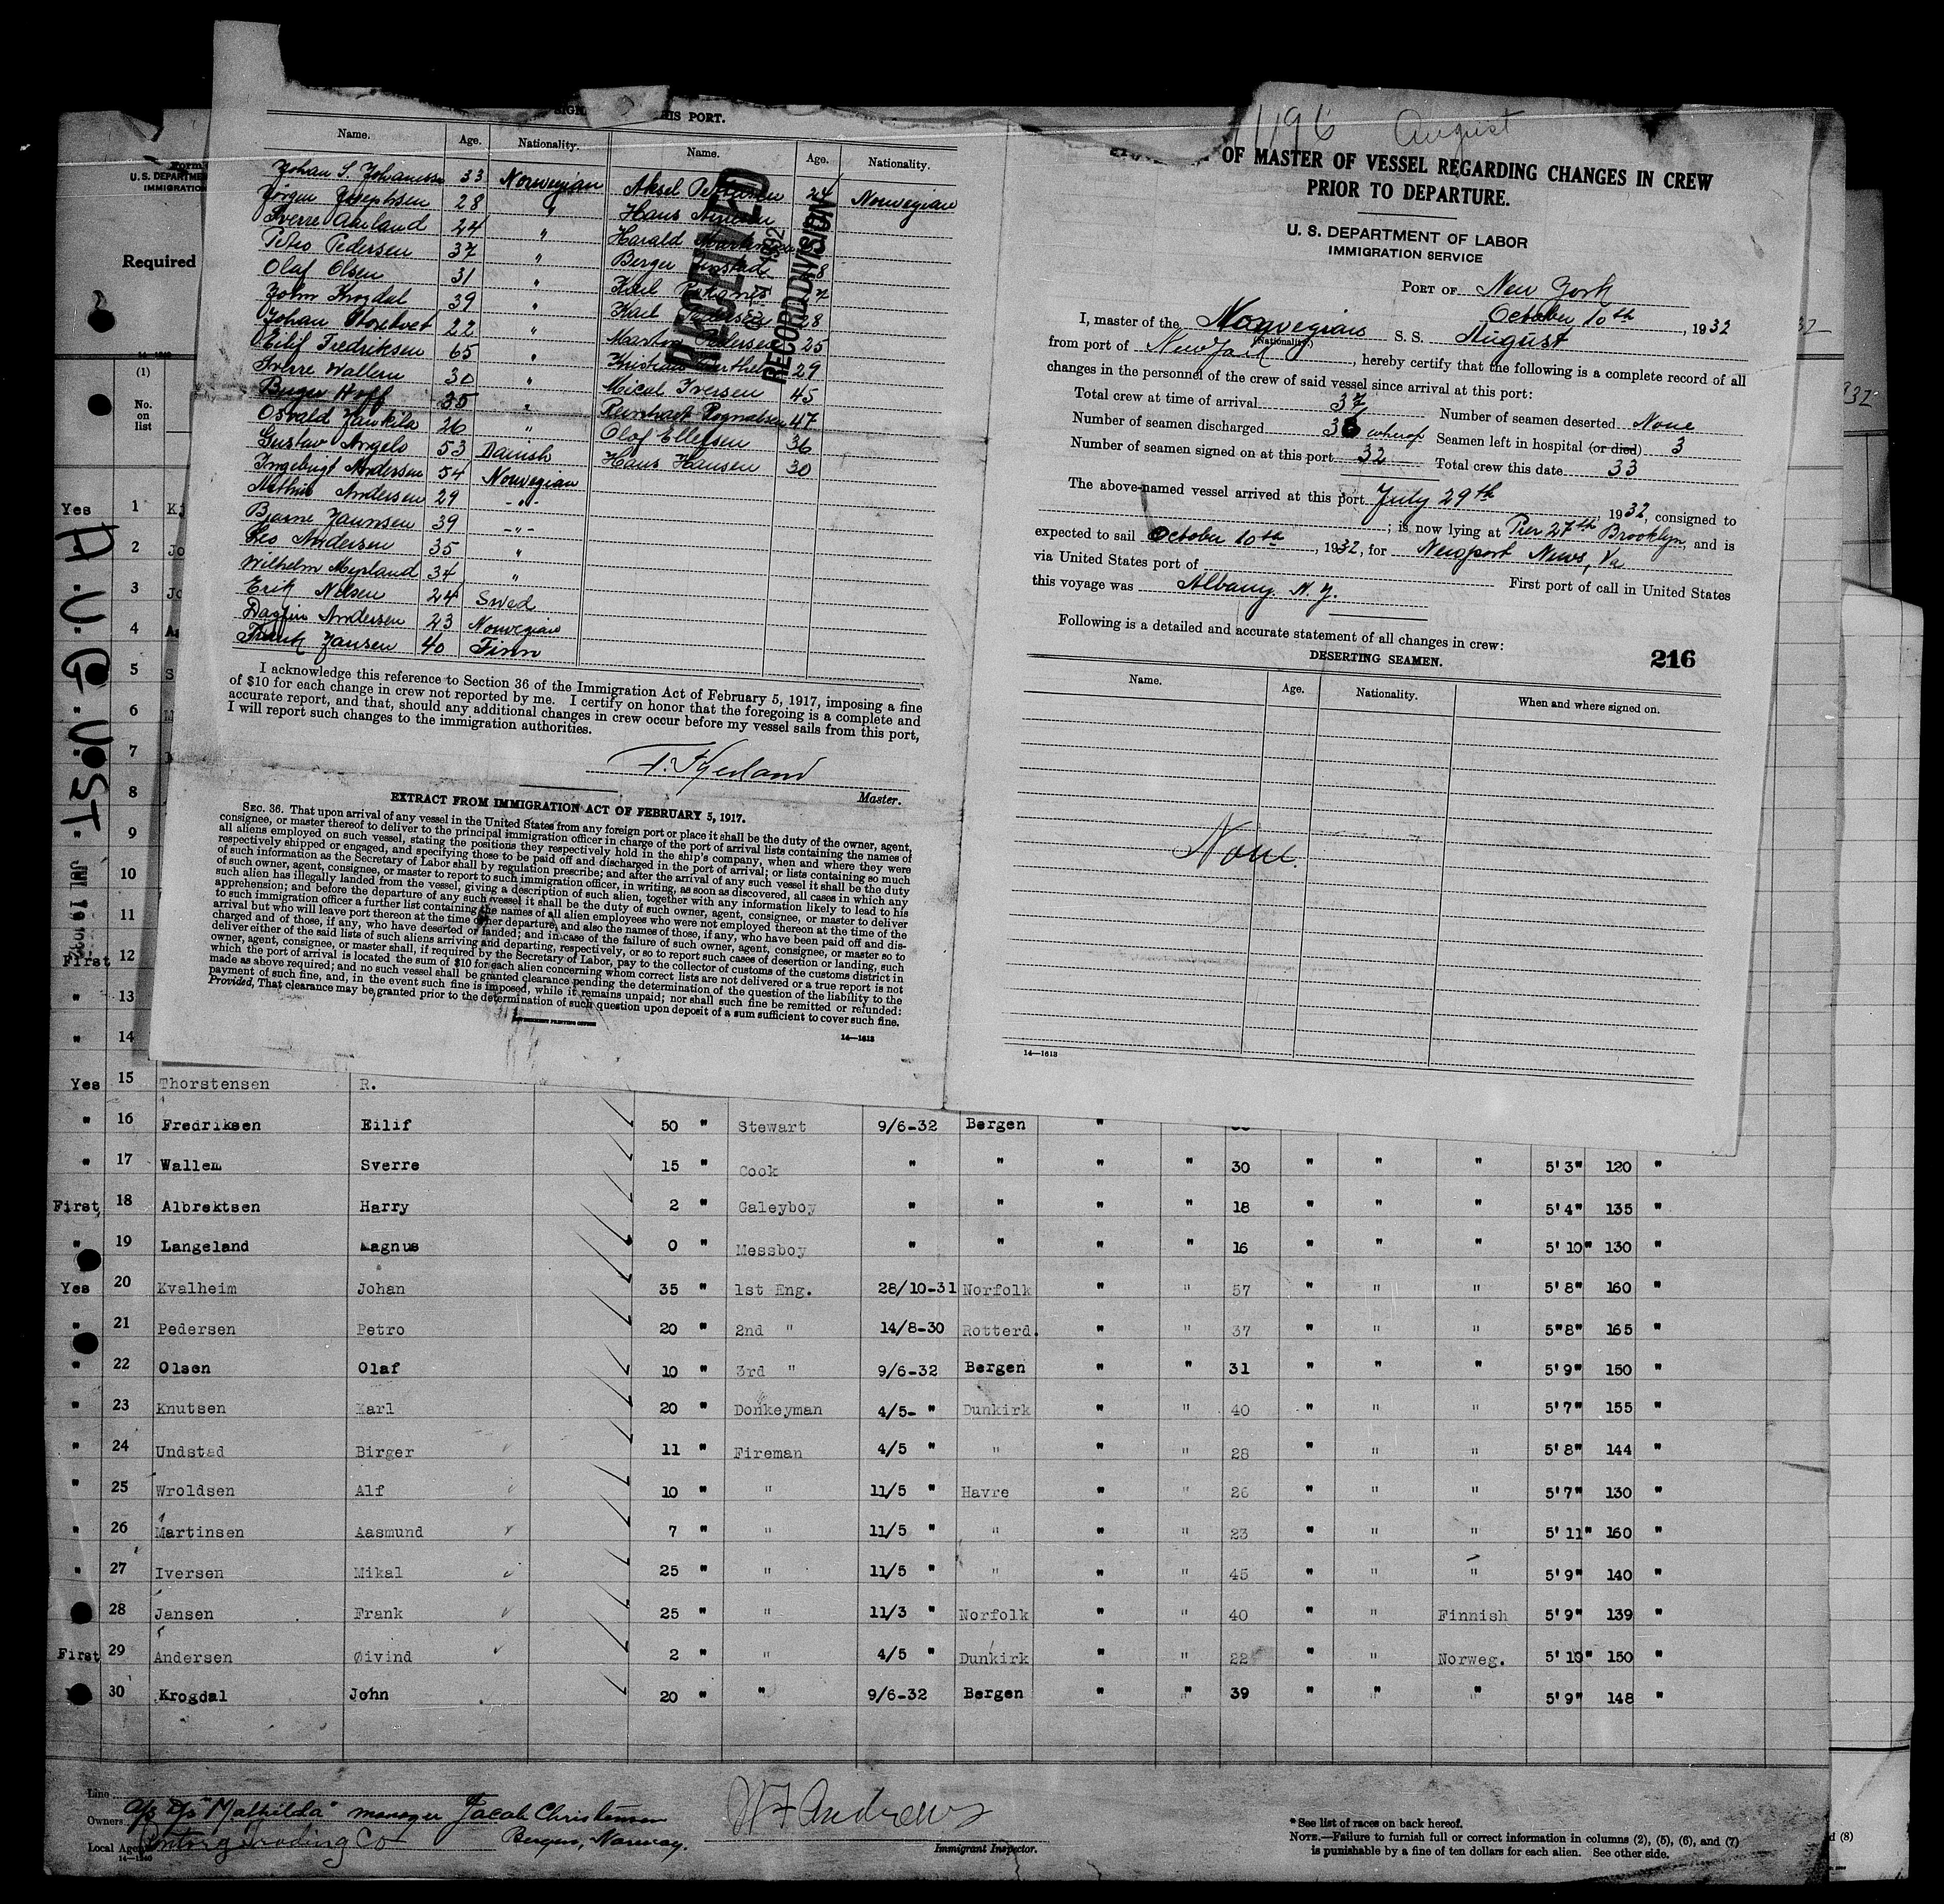 HIS PORT.
Name. Age. Nationality. Name. Age. Nationality.
Johan S. Johannesen 33 Norwegian Aksel Pettersen 24 Norwegian
Jörgen Josephsen 28 " Hans
Sverre Aarland 24 " Harald
Petro Pedersen 37 " Berger 28
Olaf Olsen 31 " Karl
John Krogdal 39 " Karl Pedersen 28
Johan 22 " Martin Pedersen 25
Eilif Fredriksen 65 " Kristian 29
Sverre Wallem 30 " Mical Iversen 45
Birger Hoff 35 " 47
Osvald 26 " Olof Ellefsen 36
Gustav Angelo 53 Danish Hans Hansen 30
Ingebrigt Andersen 54 Norwegian
Andersen 29 -"-
Bjarne Jaunsen 39 -"-
Leo Andersen 35 "
Wilhelm Myrland 34 "
Erik Nilsen 24 Swed
Dagfin Andersen 23 Norwegian
Frank Jansen 40 Finn
RECEIVED
RECORD DIVISION
I acknowledge this reference to Section 36 of the Immigration Act of February 5, 1917, imposing a fine
of $10 for each change in crew not reported by me. I certify on honor that the foregoing is a complete and
accurate report, and that, should any additional changes in crew occur before my vessel sails from this port,
I will report such changes to the immigration authorities.
Master.
EXTRACT FROM IMMIGRATION ACT OF FEBRUARY 5, 1917.
SEC. 36. That upon arrival of any vessel in the United States from any foreign port or place it shall be the duty of the owner, agent,
consignee, or master thereof to deliver to the principal immigration officer in charge of the port of arrival lists containing the names of
all aliens employed on such vessel, stating the positions they respectively hold in the ship's company, when and where they were
respectively shipped or engaged, and specifying those to be paid off and discharged in the port of arrival; or lists containing so much
of such information as the Secretary of Labor shall by regulation prescribe; and after the arrival of any such vessel it shall be the duty
of such owner, agent, consignee, or master to report to such immigration officer, in writing, as soon as discovered, all cases in which any
such alien has illegally landed from the vessel, giving a description of such alien, together with any information likely to lead to his
apprehension; and before the departure of any such vessel it shall be the duty of such owner, agent, consignee, or master to deliver
to such immigration officer a further list containing the names of all alien employees who were not employed thereon at the time of the
arrival but who will leave port thereon at the time of her departure, and also the names of those, if any, who have been paid off and dis-
charged and of those, if any, who have deserted or landed; and in case of the failure of such owner, agent, consignee, or master so to
deliver either of the said lists of such aliens arriving and departing, respectively, or so to report such cases of desertion or landing, such
owner, agent, consignee, or master shall, if required by the Secretary of Labor, pay to the collector of customs of the customs district in
which the port of arrival is located the sum of $10 for each alien concerning whom correct lists are not delivered or a true report is not
made as above required; and no such vessel shall be granted clearance pending the determination of the question of the liability to the
payment of such fine, and, in the event such fine is imposed, while it remains unpaid; nor shall such fine be remitted or refunded:
Provided, That clearance may be granted prior to the determination of such question upon deposit of a sum sufficient to cover such fine.
14—1613
1196 August
OF MASTER OF VESSEL REGARDING CHANGES IN CREW
PRIOR TO DEPARTURE.
U. S. DEPARTMENT OF LABOR
IMMIGRATION SERVICE
PORT OF New York
October 10th, 1932
I, master of the Norwegian S. S. August
(Nationality)
from port of New York, hereby certify that the following is a complete record of all
changes in the personnel of the crew of said vessel since arrival at this port:
Total crew at time of arrival 37 Number of seamen deserted None
Number of seamen discharged 36 wherof Seamen left in hospital (or died) 3
Number of seamen signed on at this port 32 Total crew this date 33
The above-named vessel arrived at this port July 29th, 1932, consigned to
; is now lying at Pier 27th Brooklyn, and is
expected to sail October 10th, 1932, for Newport News, Va
via United States port of First port of call in United States
this voyage was Albany. N.Y.
Following is a detailed and accurate statement of all changes in crew:
DESERTING SEAMEN.
216
Name. Age. Nationality. When and where signed on.
None
14—1613
U. S. DEPARTMENT
IMMIGRATION
Required
(1)
No.
on
list
AUGUST.
JUL 19 1932
Yes 1
2 Jo
3 Jo
4
5 S
6
7
8
9
10
11
First 12
" 13
" 14
Yes 15 Thorstensen R.
" 16 Fredriksen Eilif 50 " Stewart 9/6-32 Bergen "
" 17 Wallem Sverre 15 " Cook " " " " 30 " " " 5'3" 120 "
First 18 Albrektsen Harry 2 " Galeyboy " " " " 18 " " " 5'4" 135 "
" 19 Langeland Magnus 0 " Messboy " " " " 16 " " " 5'10" 130 "
Yes 20 Kvalheim Johan 35 " 1st Eng. 28/10-31 Norfolk " " 57 " " " 5'8" 160 "
" 21 Pedersen Petro 20 " 2nd " 14/8-30 Rotterd. " " 37 " " " 5"8" 165 "
" 22 Olsen Olaf 10 " 3rd " 9/6-32 Bergen " " 31 " " " 5'9" 150 "
" 23 Knutsen Karl 20 " Donkeyman 4/5- " Dunkirk " " 40 " " " 5'7" 155 "
" 24 Undstad Birger 11 " Fireman 4/5 " " " " 28 " " " 5'8" 144 "
" 25 Wroldsen Alf 10 " " 11/5 " Havre " " 26 " " " 5'7" 130 "
" 26 Martinsen Aasmund 7 " " 11/5 " " " " 23 " " " 5'11" 160 "
" 27 Iversen Mikal 25 " " 11/5 " " " " 45 " " " 5'9" 140 "
28 Jansen Frank 25 " " 11/3 " Norfolk " " 40 " " Finnish 5'9" 139 "
First 29 Andersen Øivind 2 " " 4/5 " Dunkirk " " 22 " " Norweg. 5'10" 150 "
30 Krogdal John 20 " " 9/6-32 Bergen " " 39 " " " 5'9" 148 "
Line
Owners A/S D/S "Mathilda" manager Jacob Christensen
Bergen, Norway.
Local Agents Amtorg Trading Co
14—1240
W F Andrews
Immigrant Inspector.
*See list of races on back hereof.
NOTE.—Failure to furnish full or correct information in columns (2), (5), (6), and (7)
is punishable by a fine of ten dollars for each alien. See other side.
d (8)